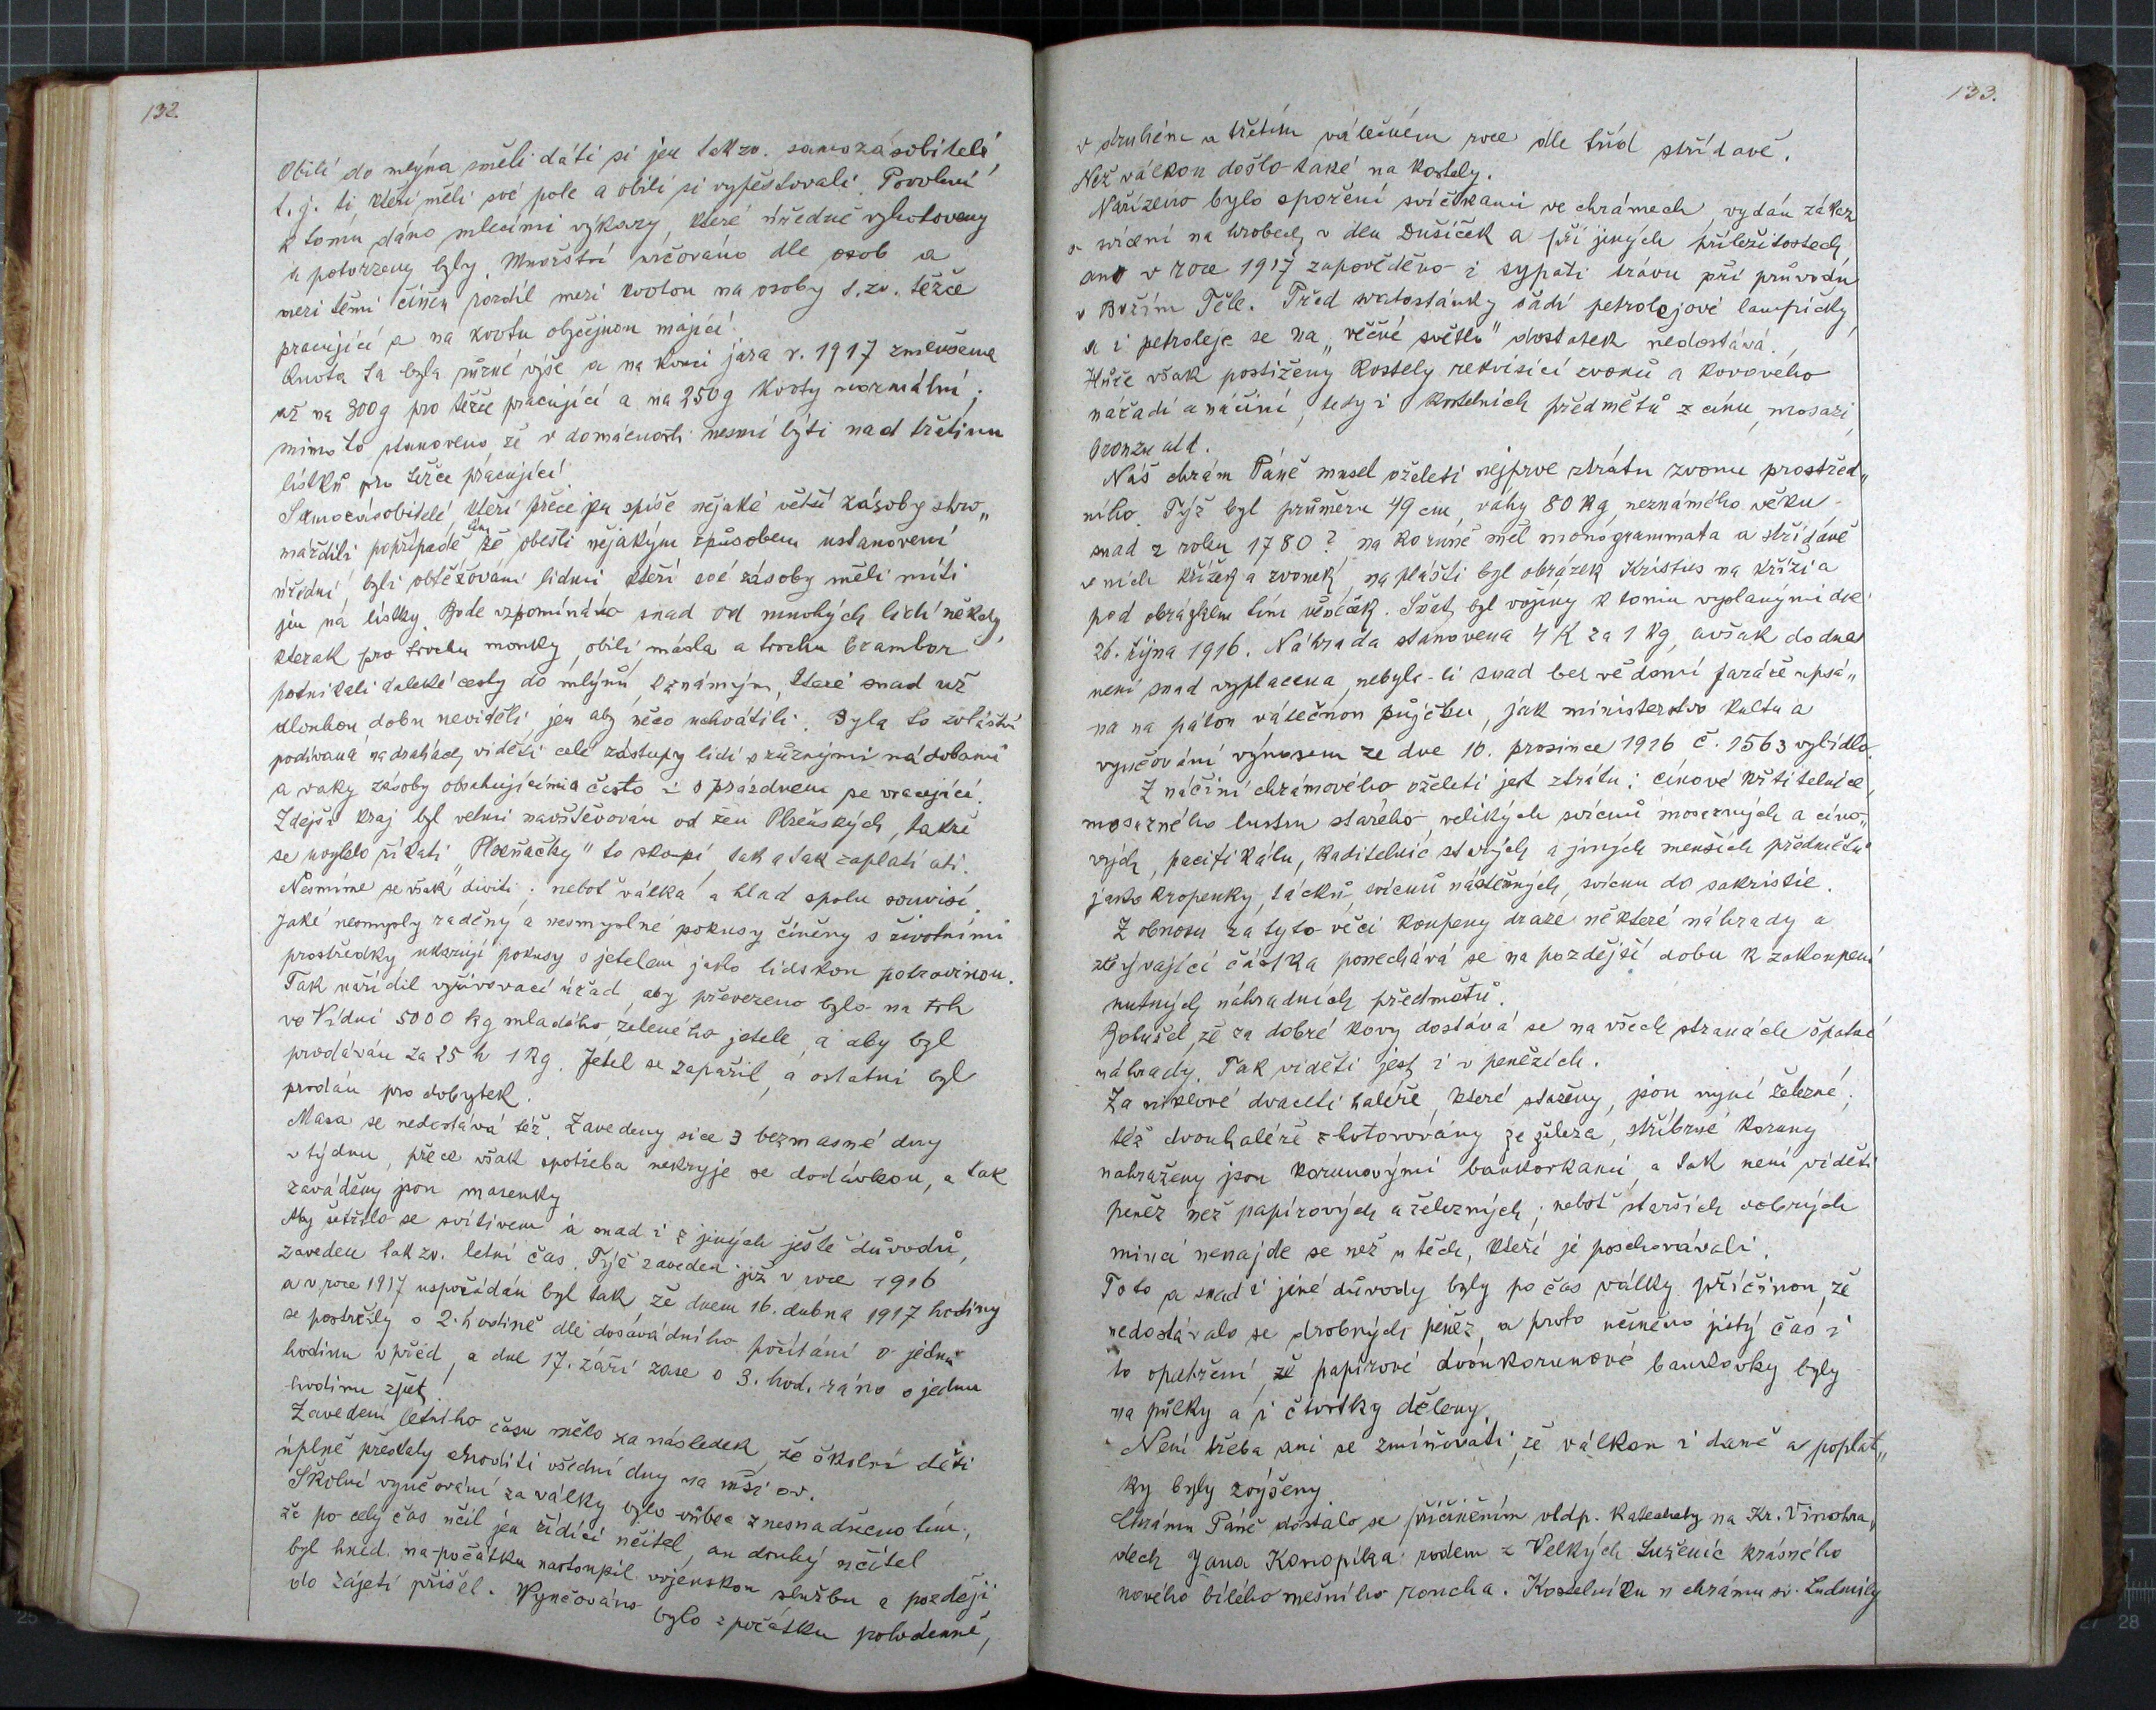 132.
Obilí do mlýna směli dáti si jen takzv. samozásobitelé,
t. j. ti kteří měli své pole a obilí si vypěstovali. Povolení
k tomu dáno mlecími výkazy, které úředně vyhotoveny
a potvrzeny byly. Množství určováno dle osob a
mezi těmi činěn rozdíl mezi kvotou na osoby t. zv. těžce
pracující a na kvotu obyčejnou mající.
Kvota ta byla různé výše a na konci jara r. 1917 zmenšena
až na 300g pro těžce pracující a na 250g kvoty normální;
mimo to stanoveno, že v domácnosti nesmí býti nad třetinu
lístků pro těžce pracující.
Samozásobitelé, kteří přece jen spíše nějaké větší zásoby shro„
máždili, popřípadě že obešli nějakým způsobem ustanovení
úřední, byli obtěžováni lidmi, kteří své zásoby měli míti
jen na lístky. Bude vzpomínáno snad od mnohých lidí někdy,
kterak pro trochu mouky, obilí, másla a trochu brambor
podnikali daleké cesty do mlýnů, k známým, které snad už
dlouhou dobu neviděli, jen aby něco uchvátili. Byla to zvláštní
podívaná na drahách viděti celé zástupy lidí s různými nádobami
a vaky zásoby obsahujícími a často i s prázdnem se vracející.
Zdejší kraj byl velmi navštěvován od žen Plzeňských, takže
se uvyklo říkati „Plzeňačky" to skoupí, tak a tak zaplatí atd.
Nesmíme se však diviti; neboť válka a hlad spolu souvisí.
Jaké nesmysly raděny a nesmyslné pokusy činěny s životními
prostředky ukazují pokusy s jetelem jako lidskou potravinou.
Tak nařídil vyživovací úřad, aby převezeno bylo na trh
ve Vídni 5000 kg mladého zeleného jetele, a aby byl
prodáván za 25 h 1 kg. Jetel se zapařil, a ostatní byl
prodán pro dobytek.
Masa se nedostává též. Zavedeny sice 3 bezmasné dny
v týdnu, přece však spotřeba nekryje se dodávkou, a tak
zaváděny jsou masenky.
Aby šetřilo se svítivem a snad i z jiných ještě důvodů,
zaveden tak zv. letní čas. Týž zaveden již v roce 1916
a v roce 1917 uspořádán byl tak, že dnem 16. dubna 1917 hodiny
se postrčily o 2. hodině dle dosavádního počítání o jednu
hodinu v před, a dne 17. září zase o 3. hod. ráno o jednu
hodinu zpět.
Zavedení letního času mělo za následek, že školní děti
úplně přestaly choditi všední dny na mši sv.
Školní vyučování za války bylo vůbec znesnadněno tím,
že po celý čas učil jen řídící učitel, an druhý učitel
byl hned na počátku nastoupil vojenskou službu a později
do zajetí přišel. Vyučováno bylo z počátku polodenně,
133.
v druhém a třetím válečném roce dle tříd střídavě.
Než válkou došlo také na kostely.
Nařízeno bylo spoření svíčkami ve chrámech, vydán zákaz
svícení na hrobech v den Dušiček a při jiných příležitostech
ano v roce 1917 zapověděno i sypati trávu při průvodu
o Božím Těle. Před svatostánky svítí petrolejové lampičky,
a i petroleje se na „věčné světlo" dostatek nedostává.
Hůře však postiženy kostely rekvisicí zvonů a kovového
nářadí a náčiní, tedy i kostelních předmětů z cínu, mosazi,
bronzu atd.
Náš chrám Páně musel oželeti nejprve ztrátu zvonu prostřed„
ního. Týž byl průměru 49 cm, váhy 80 kg, neznámého věku
snad z roku 1780? na koruně měl monogrammata a střídavě
v nich křížek a zvonek, na plášti byl obrázek Kristus na kříži a
pod obrázkem tím věneček. Sňat byl vojíny k tomu vyslanými dne
26. října 1916. Náhrada stanovena 4 K za 1 kg, avšak dodnes
není snad vyplacena, nebyla-li snad bez vědomí faráře upsá„
na na pátou válečnou půjčku, jak ministerstvo kultu a
vyučování výnosem ze dne 10. prosince 1916 č. 1563 vybídlo.
Z náčiní chrámového oželeti jest ztrátu: cínové křtitelnice,
mosazného lustru starého, velikých svícnů mosazných a cíno„
vých, pacifikálu, kaditelnic starých a jiných menších předmětů
jako kropenky, tácků, svícnů nástěnných, svícnu do sakristie.
Z obnosu za tyto věci koupeny draze některé náhrady a
zbývající částka ponechává se na pozdější dobu k zakoupení
nutných náhradních předmětů.
Bohužel, že za dobré kovy dostává se na všech stranách špatné
náhrady. Tak viděti jest i v penězích.
Za niklové dvaceti haléře, které staženy, jsou nyní železné;
též dvouhaléře zhotovovány ze železa, stříbrné koruny
nahraženy jsou korunovými bankovkami, a tak není viděti
peněz než papírových a železných; neboť starších dobrých
mincí nenajde se než u těch, kteří je poschovávali.
Toto a snad i jiné důvody byly po čas války příčinou, že
nedostávalo se drobných peněz, a proto učiněno jistý čas i
to opatření, že papírové dvoukorunové bankovky byly
na půlky a i čtvrtky děleny.
Není třeba ani se zmiňovati, že válkou i daně a poplat„
ky byly zvýšeny.
Chrámu Páně dostalo se přičiněním vldp. katechety na Kr. Vinohra„
dech Jana Konopíka rodem z Velkých Luženic krásného
nového bílého mešního roucha. Kostelníku u chrámu sv. Ludmily